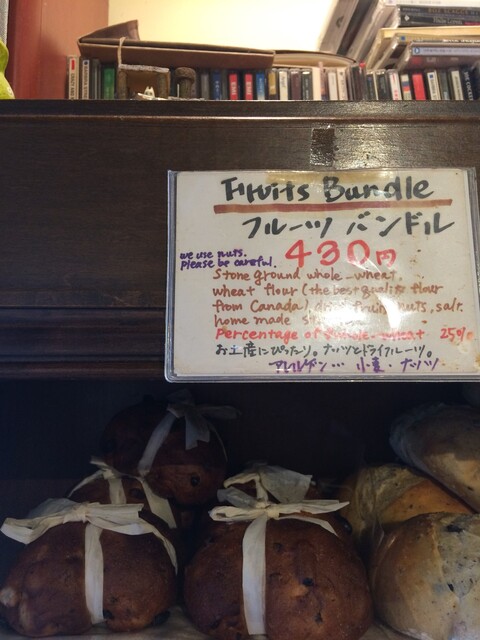 Fruits Bundle
フルーツ バンドル
430円
we use nuts.
Please be careful.
Stone ground whole-wheat.
wheat flour (the best quality flour
from Canada) dried fruits, nuts, salt.
home made
Percentage of whole-wheat 25%
お土産にぴったり。ナッツとドライフルーツ。
アレルゲン… 小麦・ナッツ